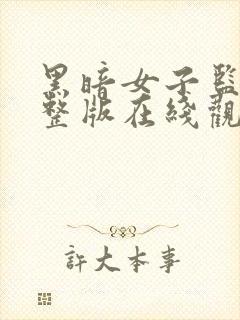 黑暗女子監
整版在綫觀
許大本事